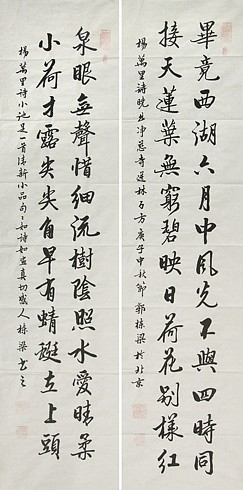 畢竟西湖六月中風光不與四時同
接天蓮葉無窮碧映日荷花别樣紅
楊萬里詩曉出净慈寺送林子方庚子中秋節郭栋梁於北京
泉眼無聲惜細流樹陰照水愛晴柔
小荷才露尖尖角早有蜻蜓立上頭
楊萬里詩小池是一首清新小品句々如詩如画真切感人栋梁書之